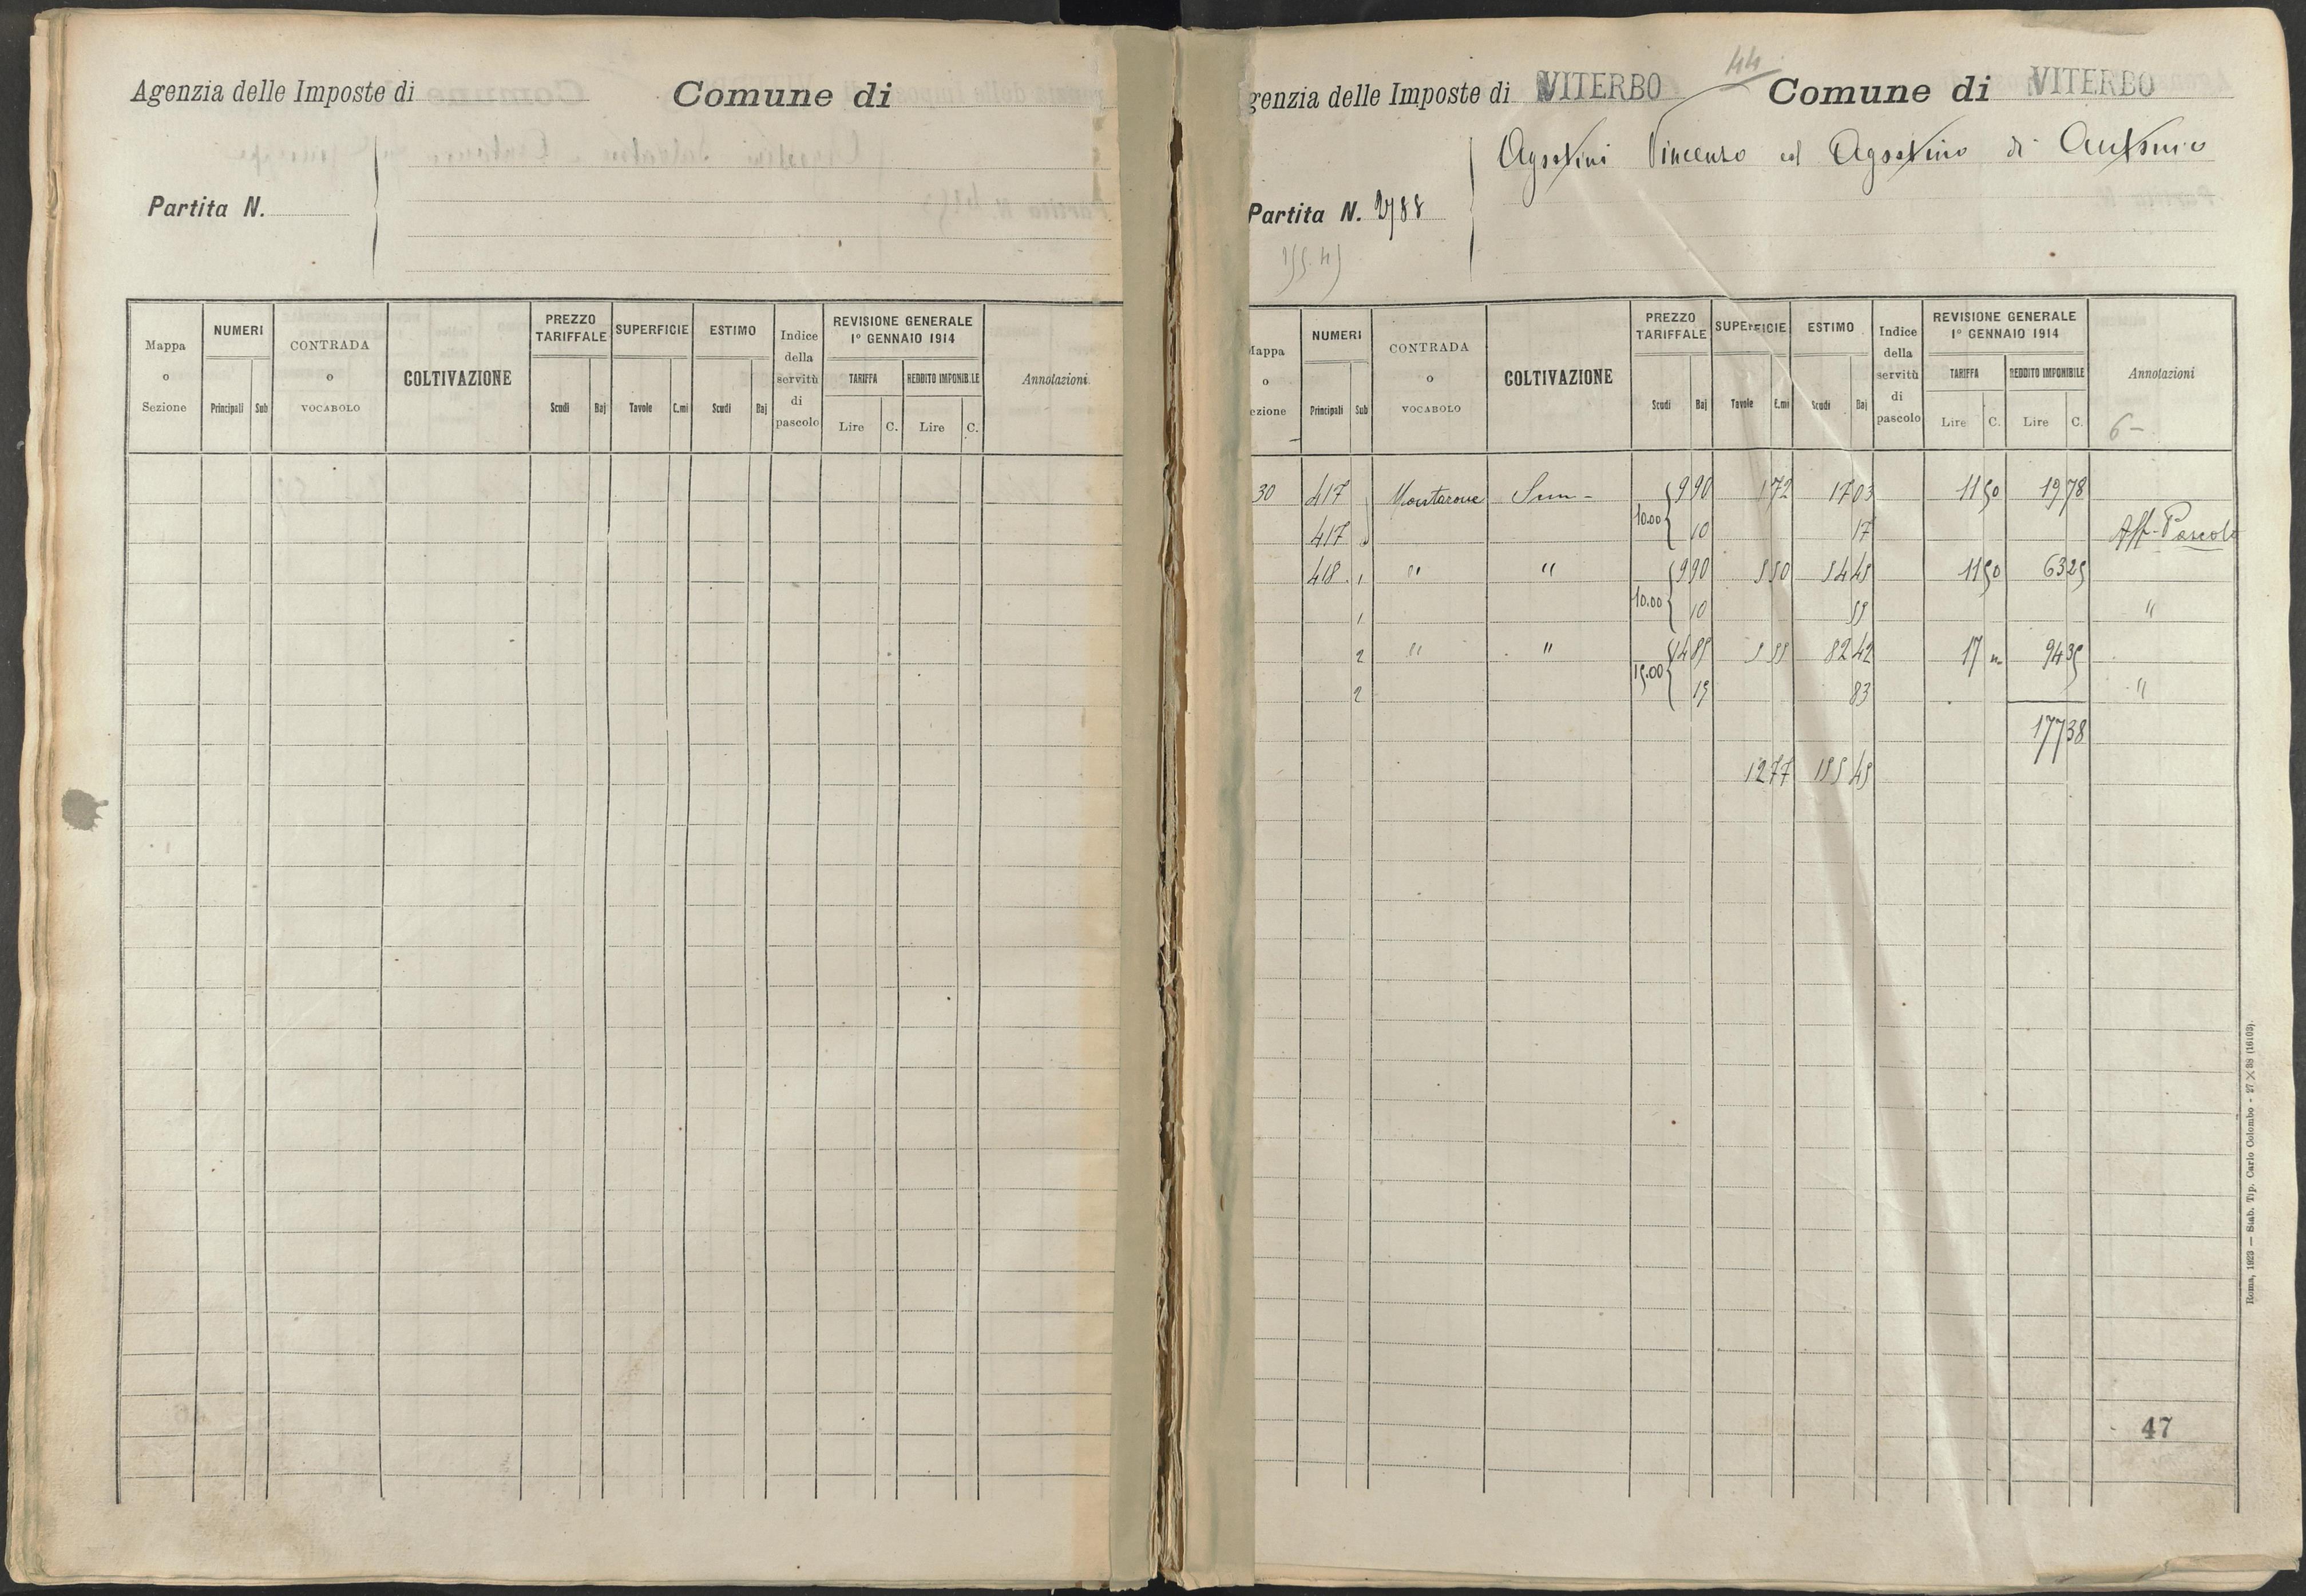 Agenzia delle Imposte di
Comune di
Partita N.
Mappa o Sezione
NUMERI
Principali Sub
CONTRADA o VOCABOLO
COLTIVAZIONE
PREZZO TARIFFALE
Scudi Baj
SUPERFICIE
Tavole C.mi
ESTIMO
Scudi Baj
Indice della servitù di pascolo
REVISIONE GENERALE
1º GENNAIO 1914
TARIFFA
Lire C.
REDDITO IMPONIBILE
Lire C.
Annotazioni
44
genzia delle Imposte di VITERBO Comune di VITERBO
Agostini Vincenzo ed Agostino di Antonio
Partita N. 2788
155.45
Mappa o ezione
NUMERI
Principali Sub
CONTRADA o VOCABOLO
COLTIVAZIONE
PREZZO TARIFFALE
Scudi Baj
SUPERFICIE
Tavole C.mi
ESTIMO
Scudi Baj
Indice della servitù di pascolo
REVISIONE GENERALE
1º GENNAIO 1914
TARIFFA
Lire C.
REDDITO IMPONIBILE
Lire C.
Annotazioni
6-
30 417 Montarone Sem- 9 90 1 72 17 03 11 50 19 78
10.00
417 10 17 Aff. Pascolo
418 1 " " 9 90 5 50 54 45 11 50 63 25
10.00
1 10 55 "
2 " " 14 85 5 55 82 42 17 " 94 35
15.00
2 15 83 "
177 38
12 77 155 45
47
Roma, 1923 — Stab. Tip. Carlo Colombo - 27 X 38 (16103).